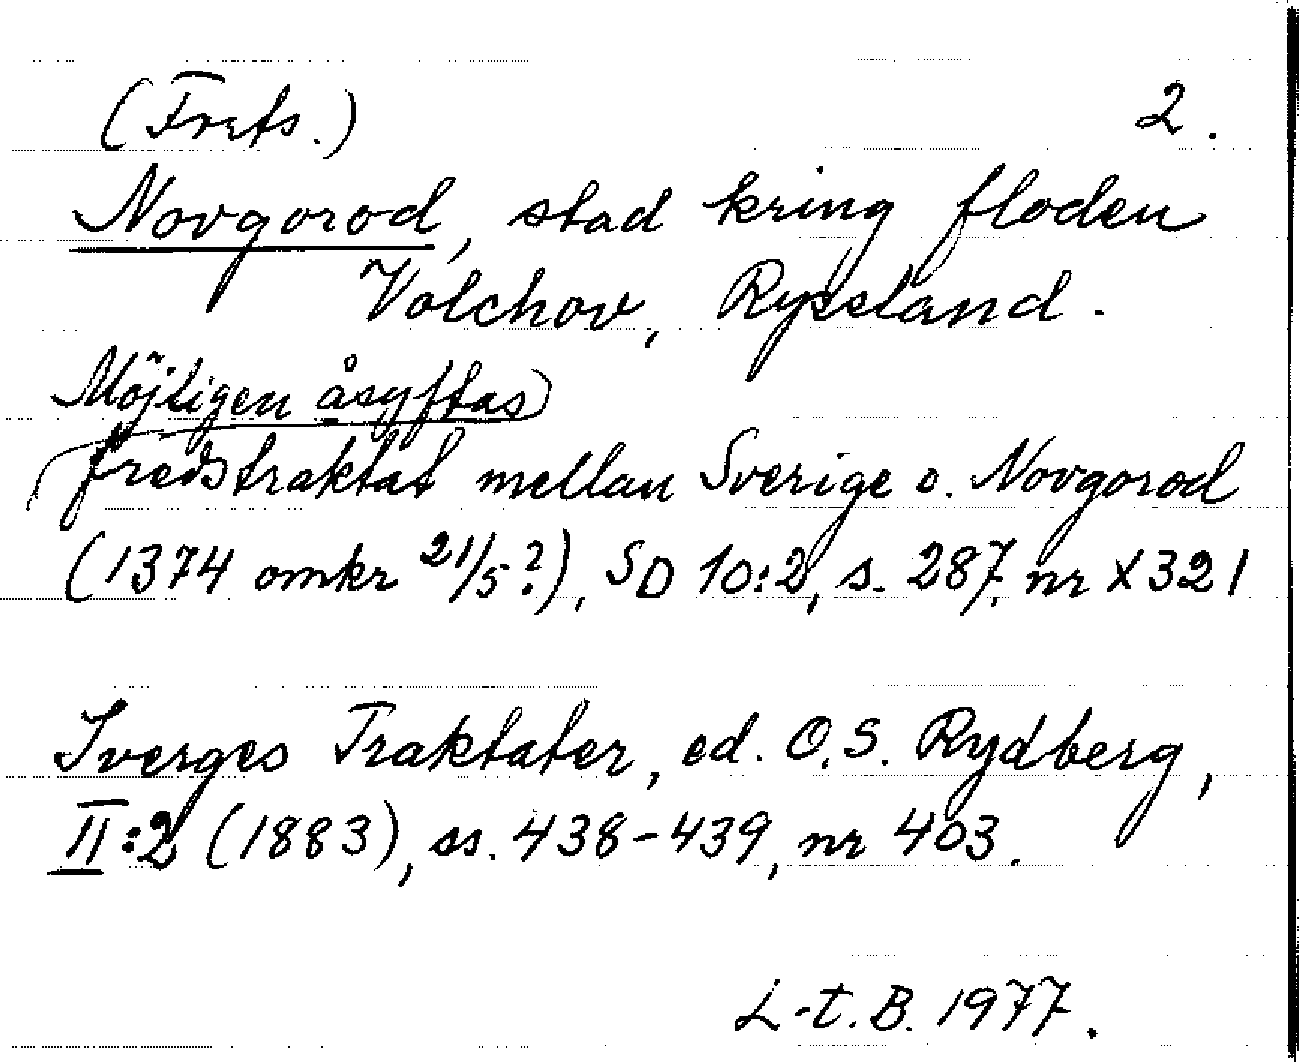 (Frets.) 2.
Novgorod, stad kring floden
Volchov, Ryssland.
Möjligen åsyftas
fredstraktat mellan Sverige o. Novgorod
(1374 omkr 21/5?), SD 10:2, s. 287, nr X321
Sverges Traktater, ed. O.S. Rydberg,
II:2 (1883), ss. 438-439, nr 403.
L-t. B. 1977.